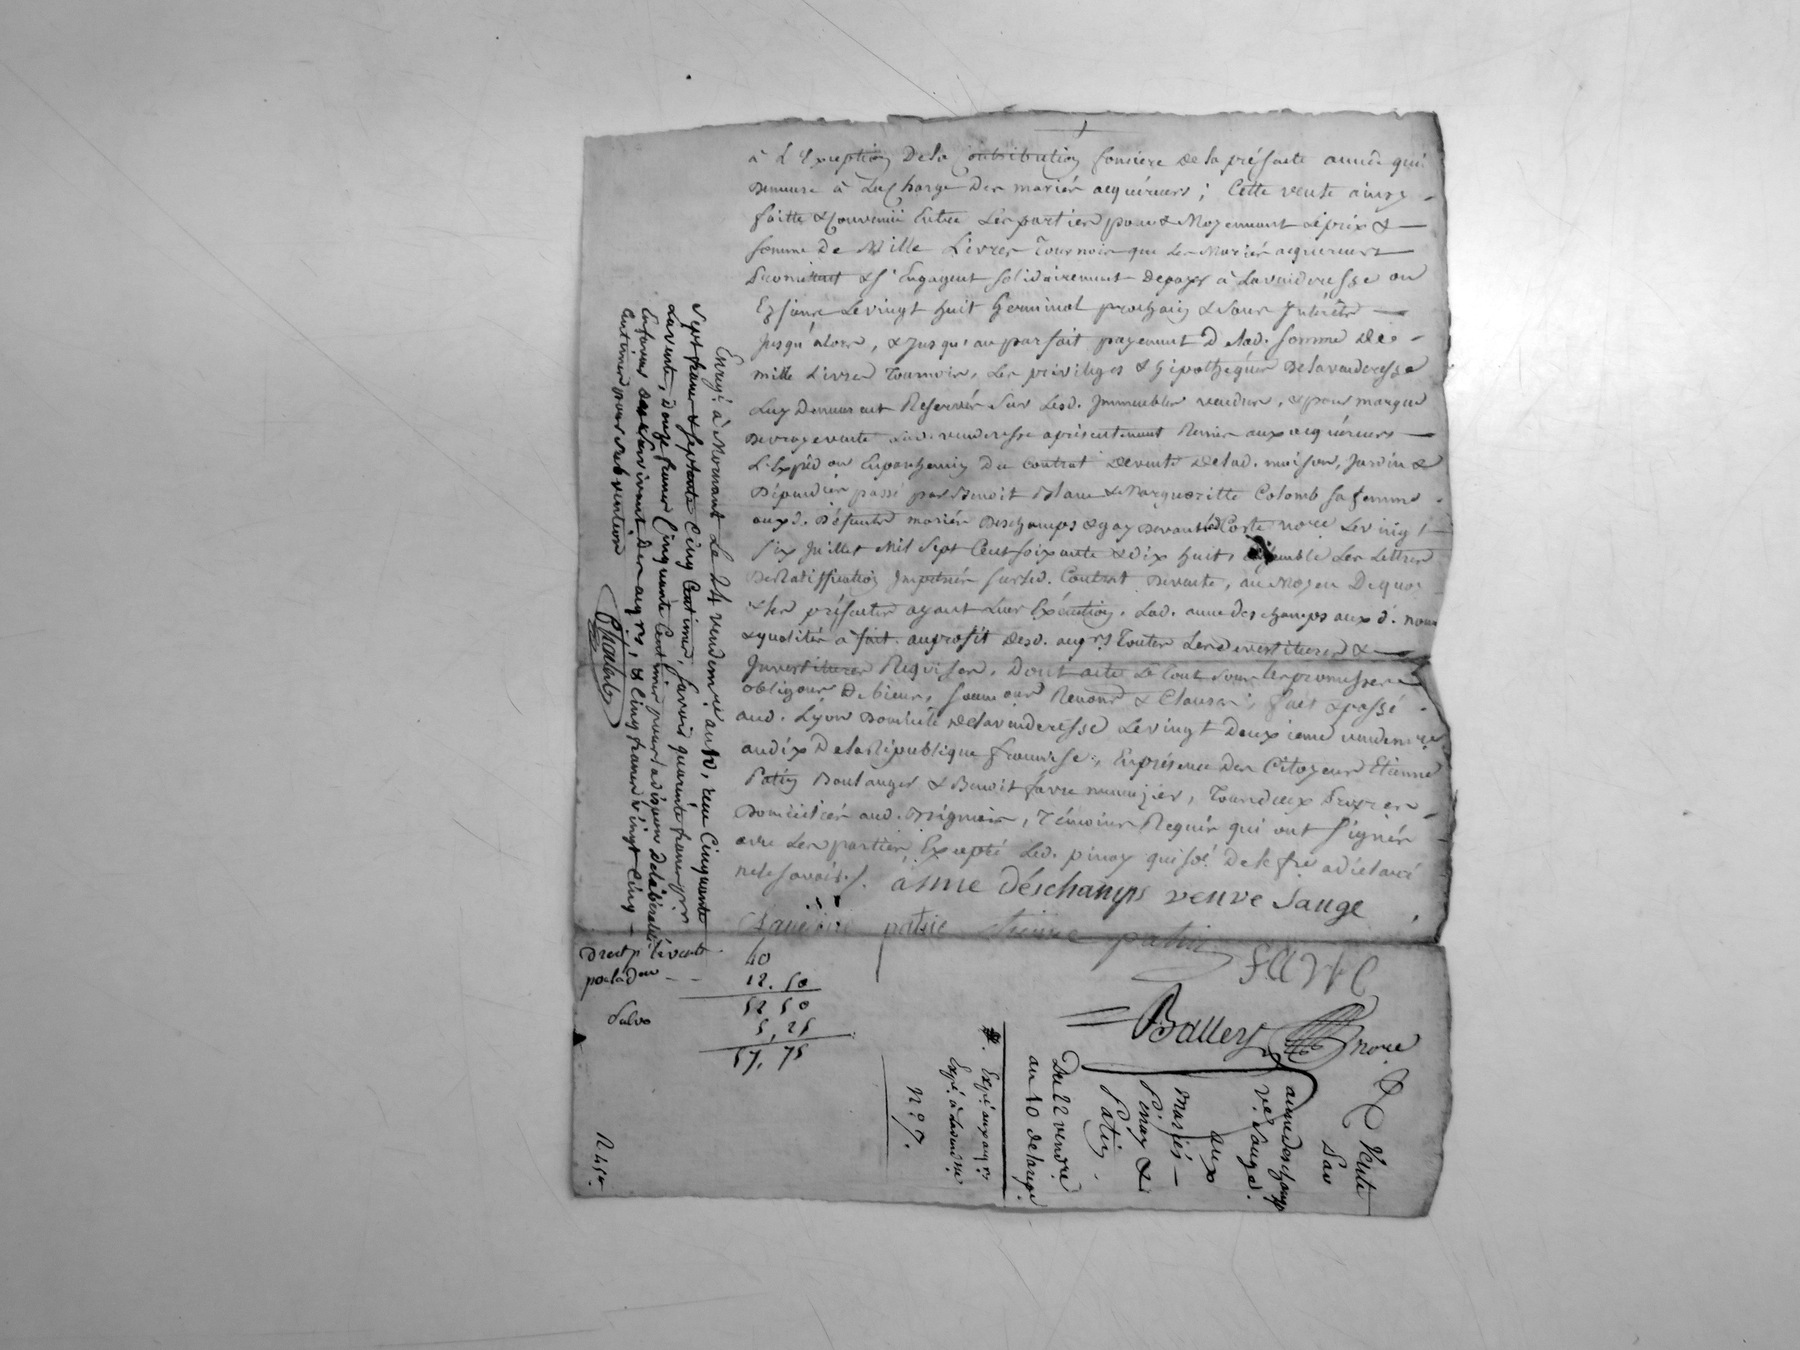 à L'Exception De la Contribution fonsiere de la présente année qui
Demeure à La Charge Des mariés acquéreurs; Cette vente ainsy
faitte & Convenüe Entre Les parties pour & Moyennant Le prix &
somme De Mille Livres Tournois que Les Mariés acquereurs
Promettent & s'Engagent solidairement De payer à La venderesse ou
Le vingt huit Germinal prochain & sans Intérêts
Jusqu'alors, & Jusqu'au parfait payement De lad. somme De
mille Livres Tournois, Les privileges & hipothéques De la venderesse
Luy Demeurant Reservés sur Lesd. Immeubles vendus, & pour marque
De vraye vente Lad. venderesse a présentement Remis aux acquéreurs
L'Expéd on En parchemin Du Contrat De vente De lad. maison, Jardin &
Dépendances passé par Benoit Blanc & Margueritte Colomb sa femme
auxd. Défunts mariés Deschamps & gay Devant Coste nore Le vingt
six Juillet Mil Sept Cent soixante & Dix huit, Ensemble Les Lettres
De Ratiffication sur led. Contrat De vente, au Moyen De quoy
& Les présentes ayant Leur Exécution. Lad. anne Deschamps aux d. noms
& qualités a fait au profit Desd. aqrs Toutes Les Devestitures &
Investitures Requises, Dont acte Le tout sous Les promesses
obligaons De biens, soumions Renons & Clauses; fait & passé
aud. Lyon Domicile De la venderesse Le vingt Deuxieme vendemre
an dix De la République francaise, En présence Des Citoyens Etienne
Patin Boulanger & Benoit favre menuizier, Tous deux
Domiciliés aud. Brignais, Témoins Requis qui ont signés
avec Les parties, Excepté Led. pinay qui De le fre a déclaré
ne le savoir.
anne déschamps veuve sauge
patin etienne patin
FAVRE
Ballery nore
Enregé à Mornant Le 24 vendemre an 10, reçu Cinquante
Sept francs & septante Cinq Centimes, savoir quarante francs pr
La vente, Douze francs Cinquante Centimes pour
Des aqrs, & Cinq francs vingt Cinq
Centimes pour subvention
Droit pr La vente 40
12. 50
52 50
Subv 5, 25
57, 75
Vente
Par
anne deschamps
ve Sauge
aux
Mariés
Pinay &
Patin.
Du 22 vendre
an 10 de la rep.
Expé aux aqrs
Expé à la vendse
no 7.
R 454.